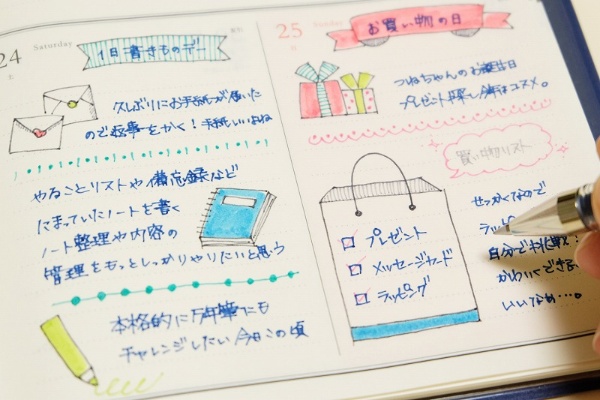 24
Saturday
1日書きものデー
久しぶりにお手紙が届いた
ので返事をかく！手紙いいよね
やることリストや備忘録など
たまっていたノートを書く
ノート整理や内容の
管理をもっとしっかりやりたいと思う
本格的に万年筆にも
チャレンジしたい今日この頃
25
Sunday
お買い物の日
つねちゃんのお誕生日
プレゼント探し
コスメ。
買い物リスト
プレゼント
メッセージカード
ラッピング
せっかくなので
ラッピ
自分で挑戦！
かわいくできる
いいなぁ…。